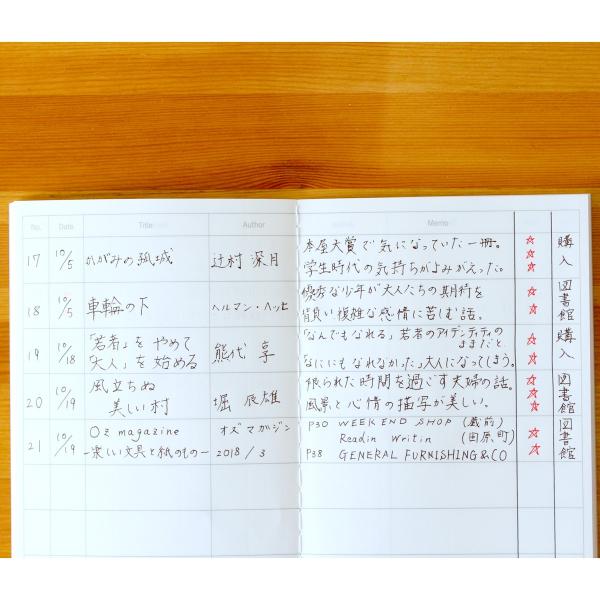 No. Date Title Author Memo
17 10/5 かがみの孤城 辻村 深月 本屋大賞で気になっていた一冊。 ☆☆☆ 購入
学生時代の気持ちがよみがえった。
18 10/5 車輪の下 ヘルマン・ヘッセ 優秀な少年が大人たちの期待を ☆☆ 図書館
背負い複雑な感情に苦しむ話。
19 10/18 「若者」をやめて 熊代 亨 「なんでもなれる」若者のアイデンティティの ☆☆ 購入
「大人」を始める ままだと、
「なににもなれなかった」大人になってしまう。
20 10/19 風立ちぬ 堀 辰雄 限られた時間を過ごす夫婦の話。 ☆☆☆ 図書館
美しい村 風景と心情の描写が美しい。
21 10/19 Oz magazine オズマガジン P30 WEEKEND SHOP (蔵前) ☆☆ 図書館
Readin Writin (田原町)
-楽しい文具と紙のもの- 2018/3 P38 GENERAL FURNISHING&CO